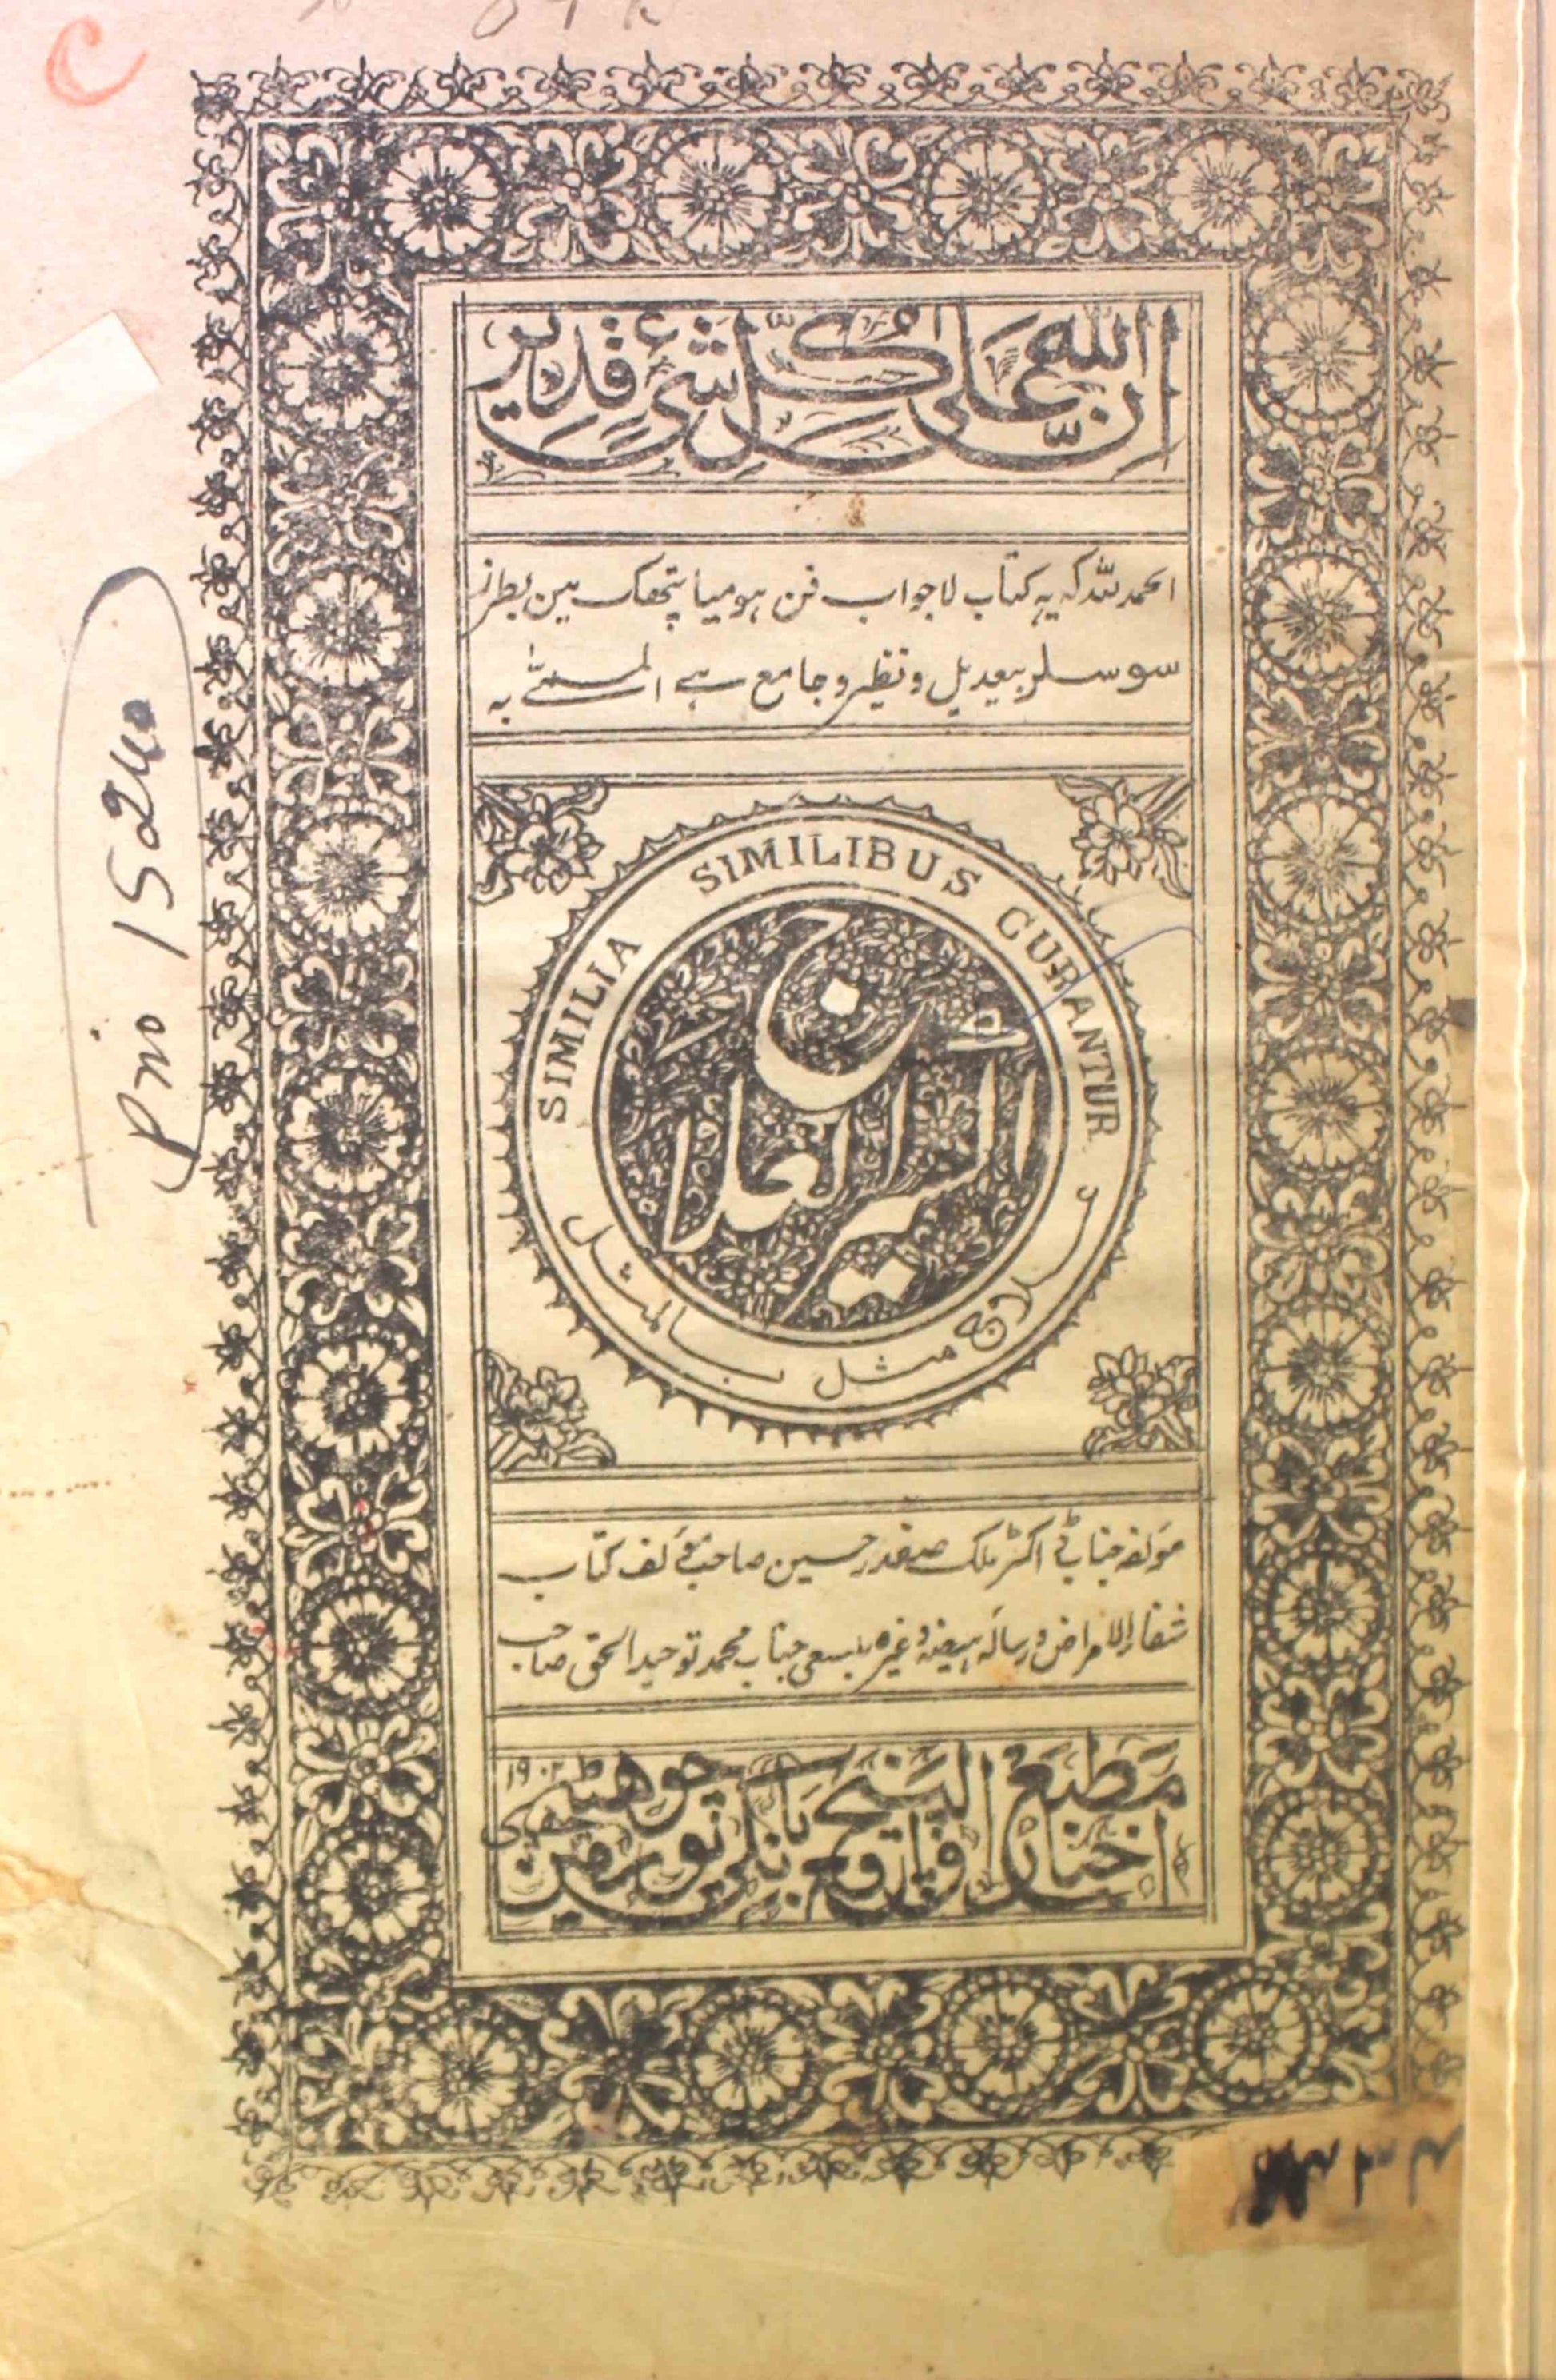 ان الله علی کل شیء قدیر
الحمد للہ کہ یہ کتاب لاجواب فن ہومیاپتھک مین بطرز
سوسلر بیعدیل و نظیر و جامع ہے المسمّٰے بہ
SIMILIA SIMILIBUS CURANTUR
اکسیر العلاج
علاج مثل بالمثل
مؤلفہ جناب ڈاکٹر ملک صفدر حسین صاحب مؤلف کتاب
شفاء الامراض و رسالہ ہیضہ وغیرہ بسعی جناب محمد توحید الحق صاحب
مطبع اخبار الپنچ واقع بانکی پور مین چھپی
۱۹۰۲
Pno 15240
C